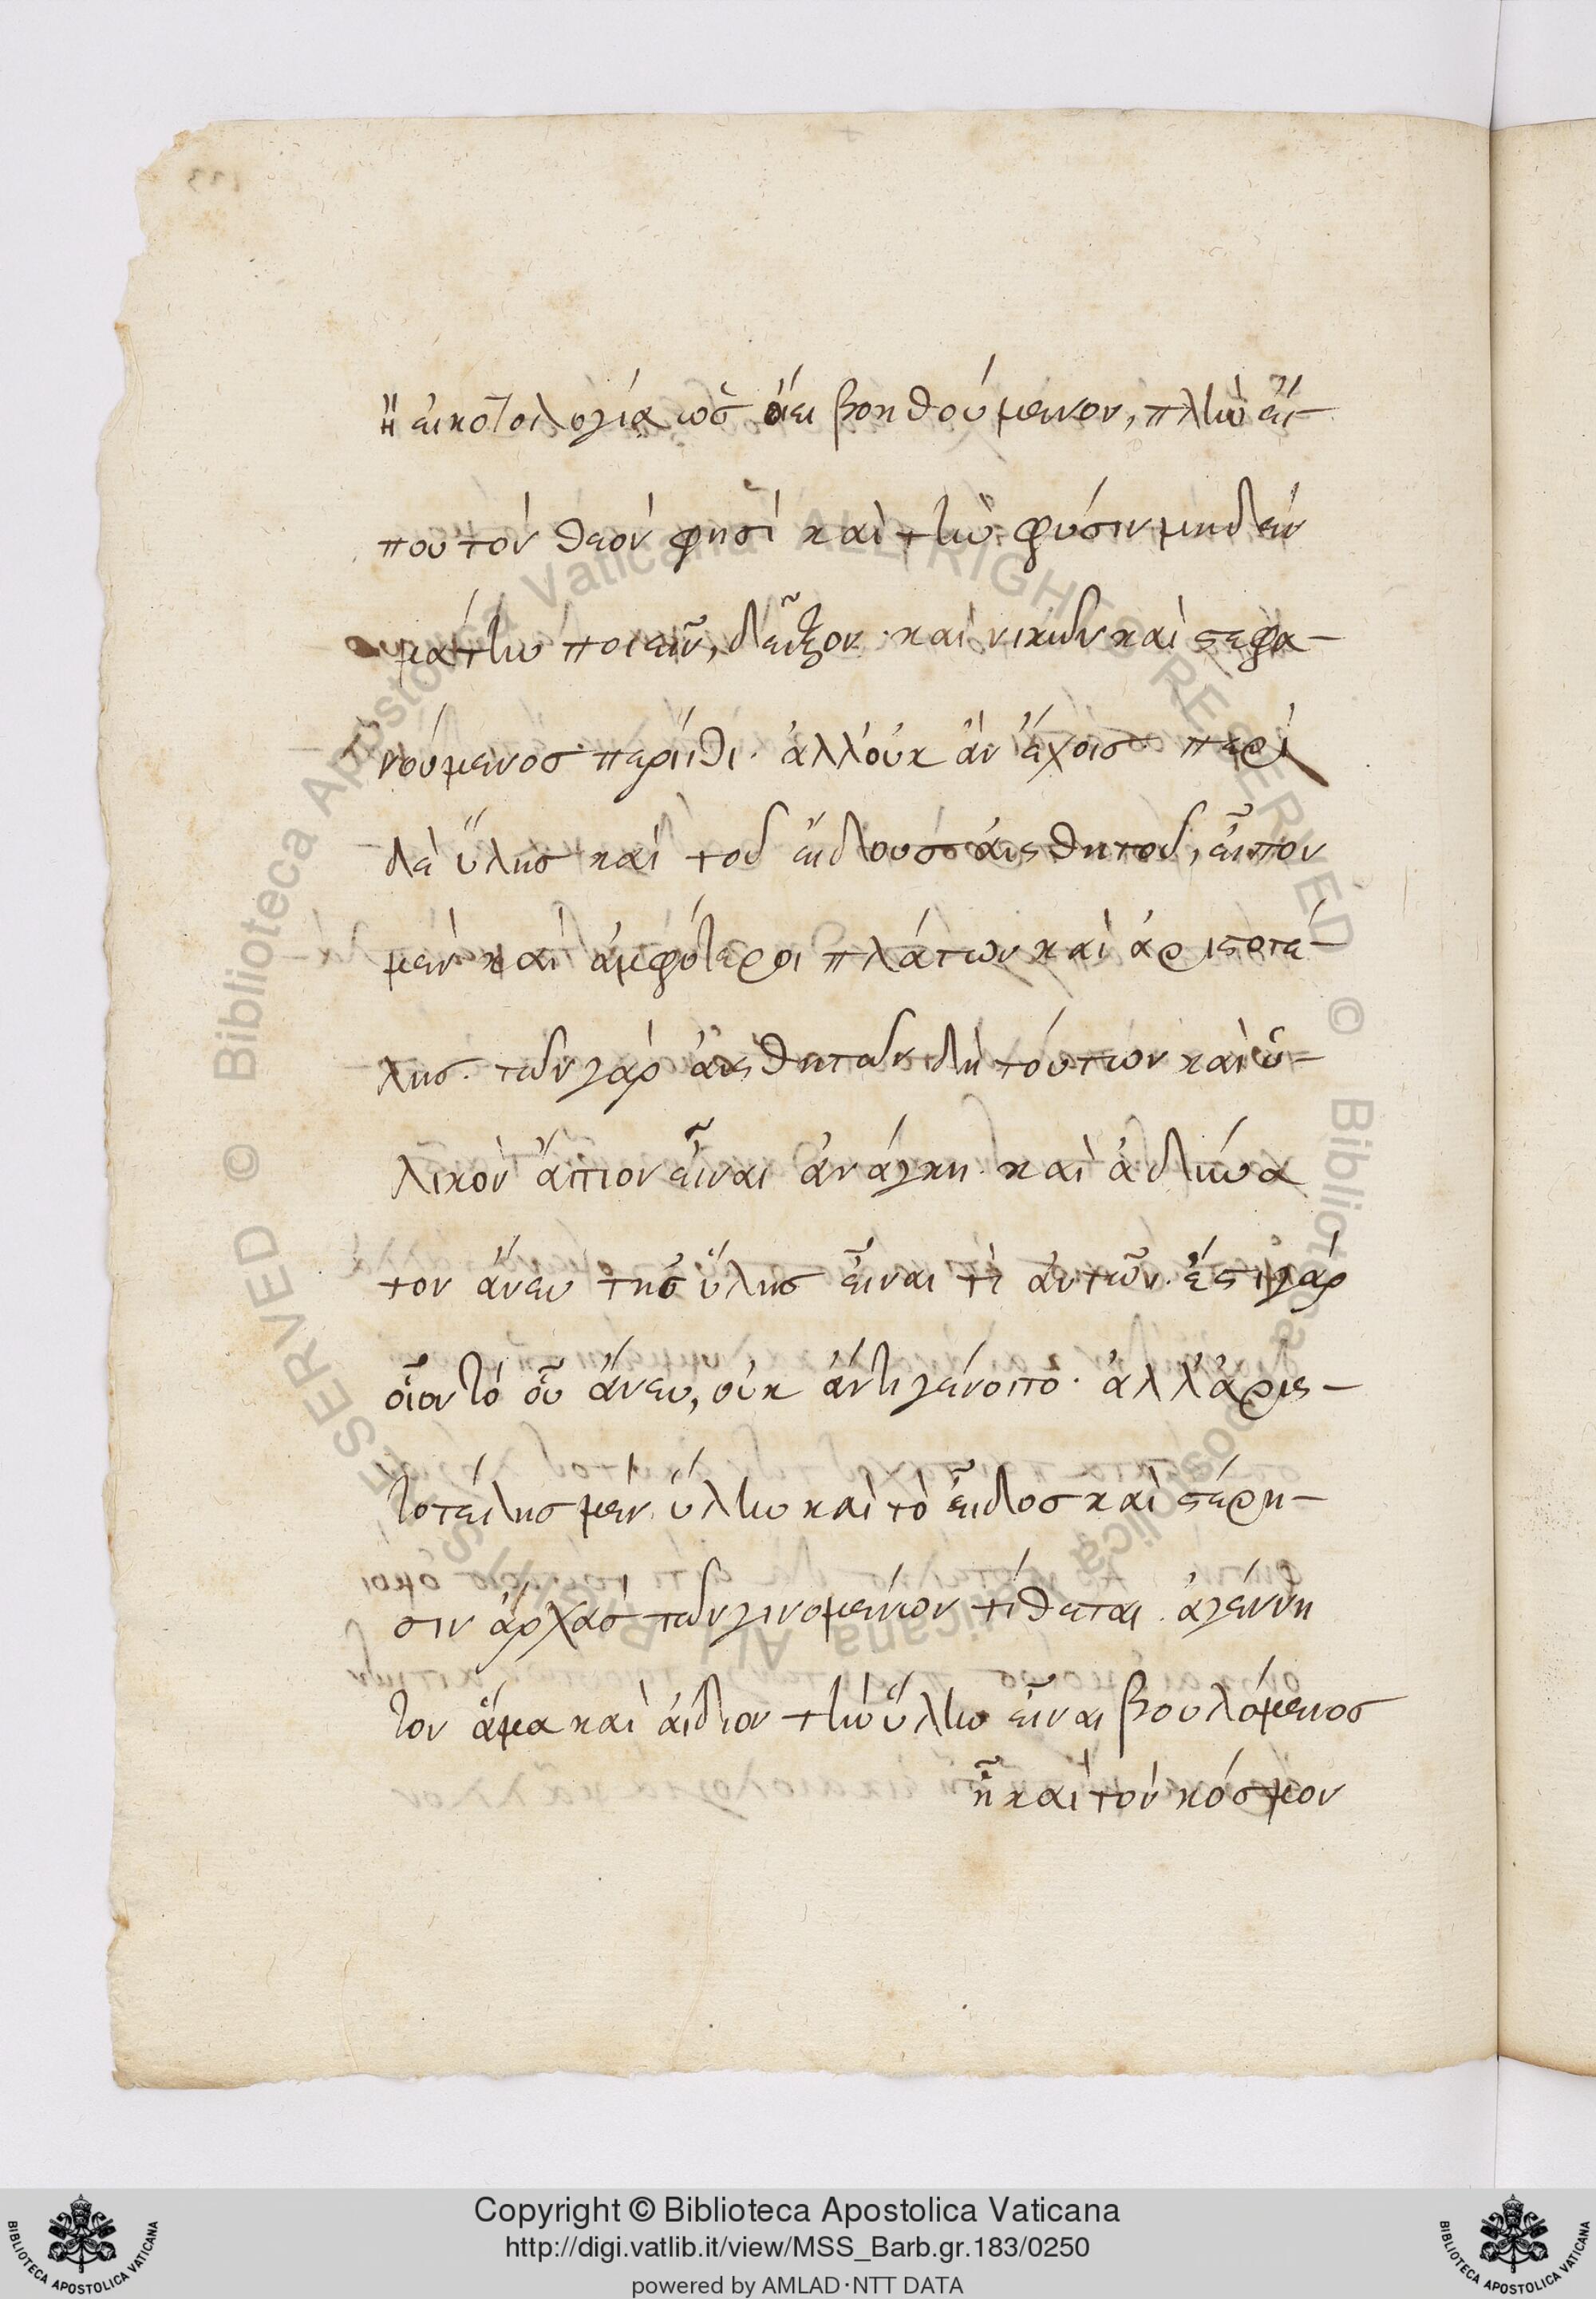 ἢ εἰκοτολογία ὡς ἀεὶ βοηθούμενον, πλὴν εἴ-
που τὸν θεὸν φησὶ καὶ τὴν φύσιν μηδὲν
μάτην ποιεῖν, δεῖξον. καὶ νικῶν καὶ στεφα-
νούμενος περίιθι. ἀλλ' οὐκ ἂν ἔχοις περὶ
δὲ ὕλης καὶ τοῦ εἴδους αἰσθητοῦ, εἶπον
μὲν καὶ ἀμφότεροι πλάτων καὶ ἀριστοτέ-
λης. τῶν γὰρ αἰσθητῶν δὴ τούτων καὶ ὑ-
λικὸν αἴτιον εἶναι ἀνάγκη. καὶ ἀδύνα
τον ἄνευ τῆς ὕλης εἶναι τὶ αὐτῶν. ἔστι γὰρ
οἷον τὸ οὗ ἄνευ, οὐκ ἄν τι γένοιτο. ἀλλ' ἀρισ-
τοτέλης μὲν ὕλην καὶ τὸ εἶδος καὶ στέρη-
σιν ἀρχὰς τῶν γινομένων τίθεται. ἀγέννη
τον ἅμα καὶ ἀίδιον τὴν ὕλην εἶναι βουλόμενος
ᾗ καὶ τὸν κόσμον
Copyright © Biblioteca Apostolica Vaticana
http://digi.vatlib.it/view/MSS_Barb.gr.183/0250
powered by AMLAD·NTT DATA